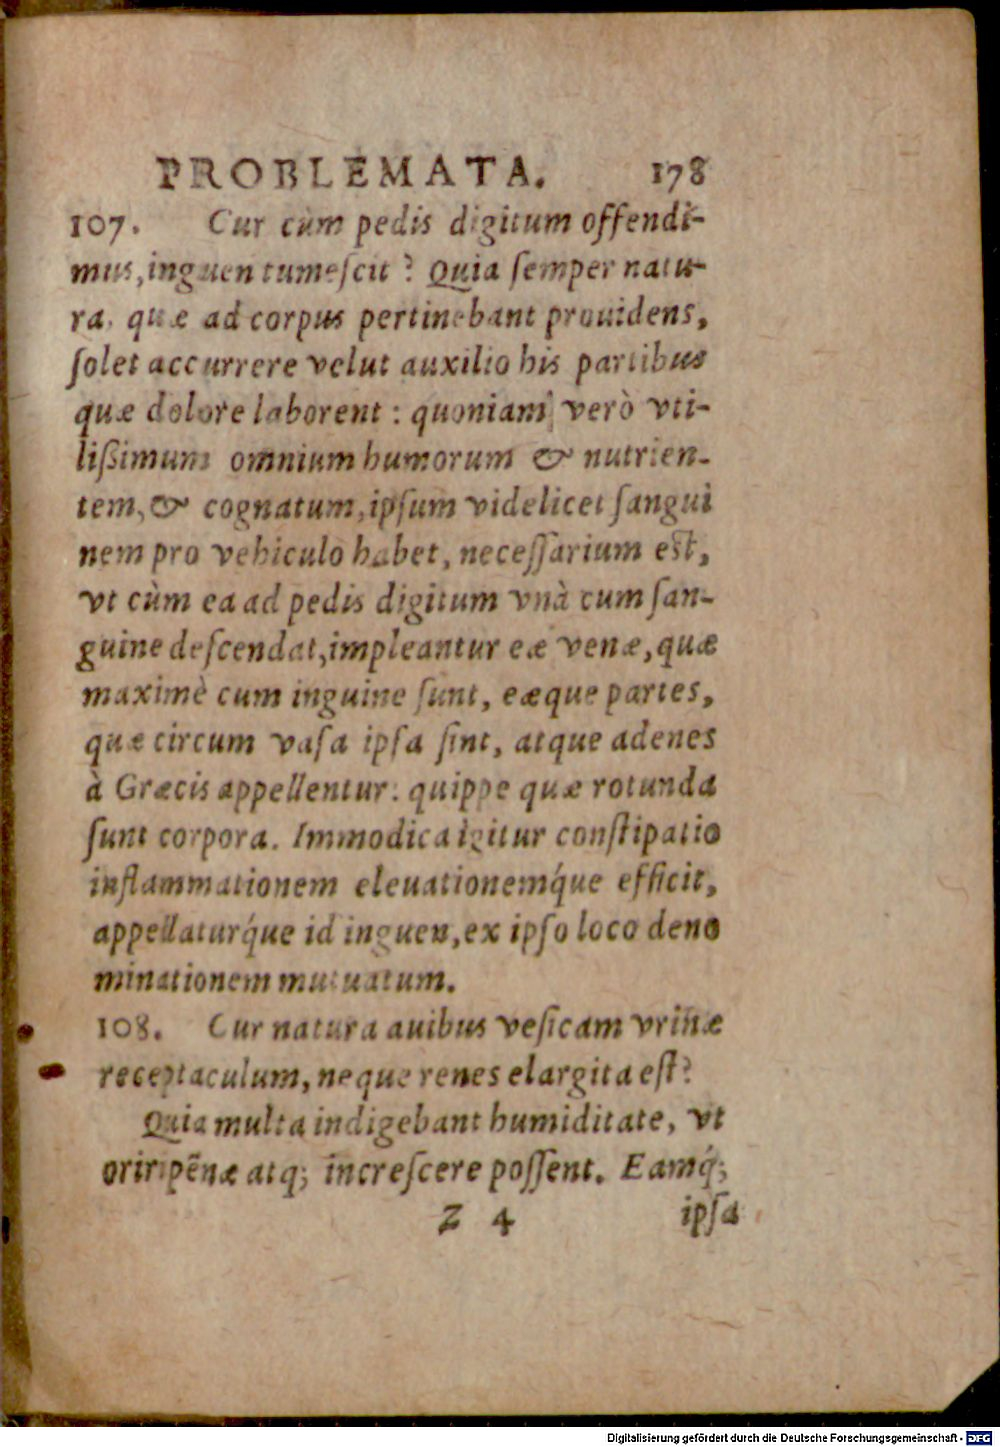 PROBLEMATA. 178
107. Cur cùm pedis digitum offendi-
mus, inguen tumeſcit? Quia ſemper natu-
ra, quæ ad corpus pertinebant prouidens,
ſolet accurrere velut auxilio his partibus
quæ dolore laborent: quoniam verò vti-
liſsimum omnium humorum & nutrien-
tem, & cognatum, ipſum videlicet ſangui
nem pro vehiculo habet, neceſſarium eſt,
vt cùm ea ad pedis digitum vnà cum ſan-
guine deſcendat, impleantur eæ venæ, quæ
maximè cum inguine ſunt, eæque partes,
quæ circum vaſa ipſa ſint, atque adenes
à Græcis appellentur: quippe quæ rotunda
ſunt corpora. Immodica igitur conſtipatio
inflammationem eleuationemq́ue efficit,
appellaturq́ue id inguen, ex ipſo loco deno
minationem mutuatum.
108. Cur natura auibus veſicam vrinæ
receptaculum, neque renes elargita eſt?
Quia multa indigebant humiditate, vt
oriri pẽnæ atq; increſcere poſſent. Eamq́;
Z 4 ipſa
Digitalisierung gefördert durch die Deutsche Forschungsgemeinschaft - DFG